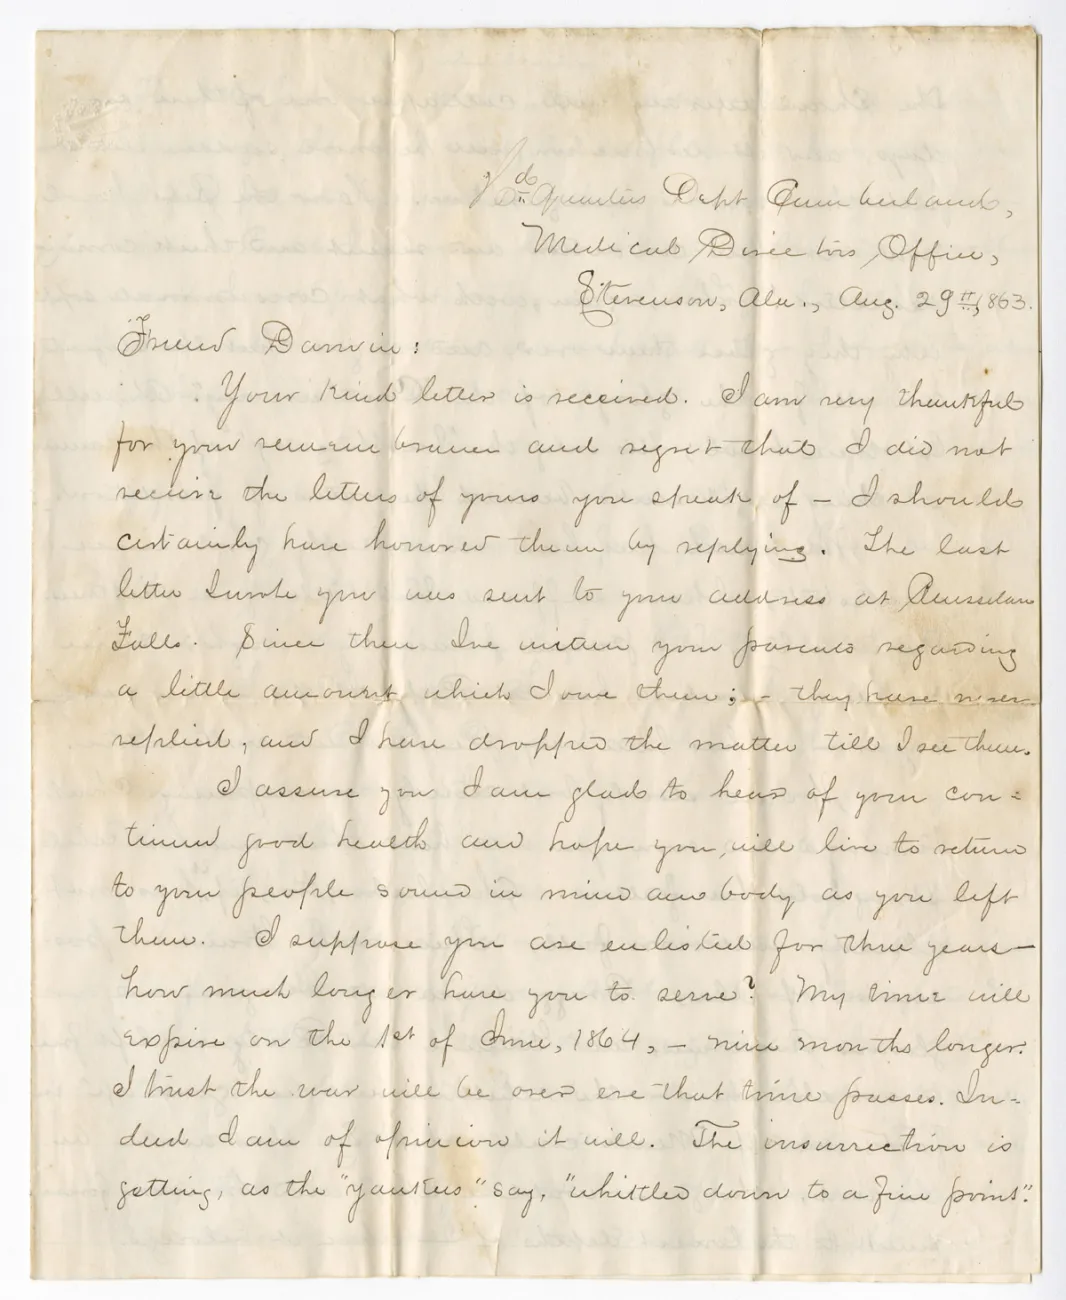 Hd Quarters Dept Cumberland,
Medical Directors Office,
Stevenson, Ala., Aug. 29th, 1863.
Friend Darwin:
Your kind letter is received. I am very thankful
for your remembrance and regret that I did not
receive the letters of yours you speak of — I should
certainly have honored them by replying. The last
letter I wrote you was sent to your address at
Falls. Since then I've written your parents regarding
a little amount which I owe them; - they have never
replied, and I have dropped the matter till I see them.
I assure you I am glad to hear of your con=
tinued good health and hope you will live to return
to your people sound in mind and body as you left
them. I suppose you are enlisted for three years —
how much longer have you to serve? My time will
expire on the 1st of June, 1864, — nine months longer.
I trust the war will be over ere that time passes. In-
deed I am of opinion it will. The insurrection is
getting, as the "yankees" say, "whittled down to a fine point".